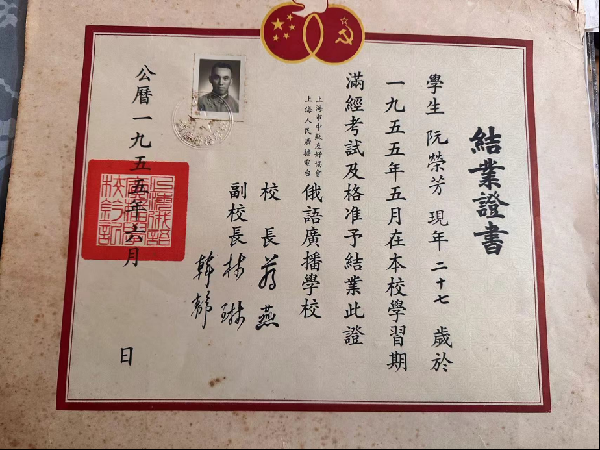 結業證書
學生 阮榮芳 現年 二十七 歲於
一九五五年五月在本校學習期
滿經考試及格准予結業此證
上海市中蘇友好協會
上海人民廣播電台
俄語廣播學校
校長 蔣燕
副校長 林琳
韓靜
公曆一九五五年六月 日